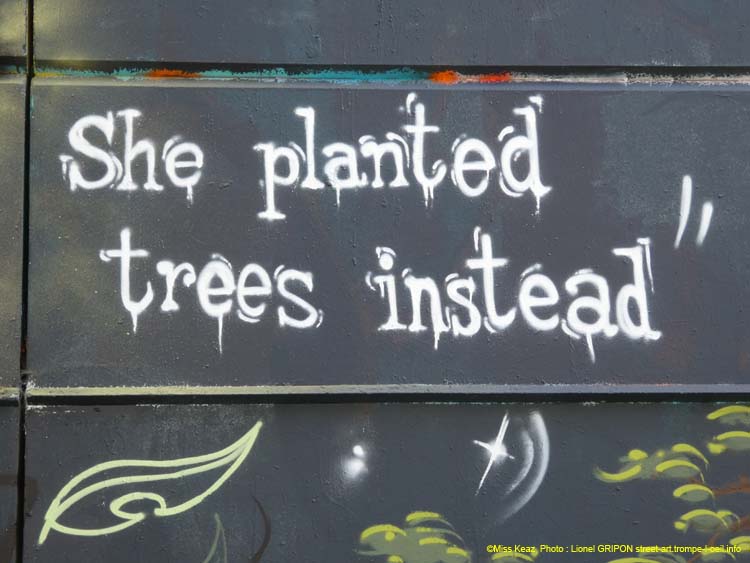 She planted
trees instead"
©Miss Keaz Photo : Lionel GRIPON street-art.trompe-l-oeil.info